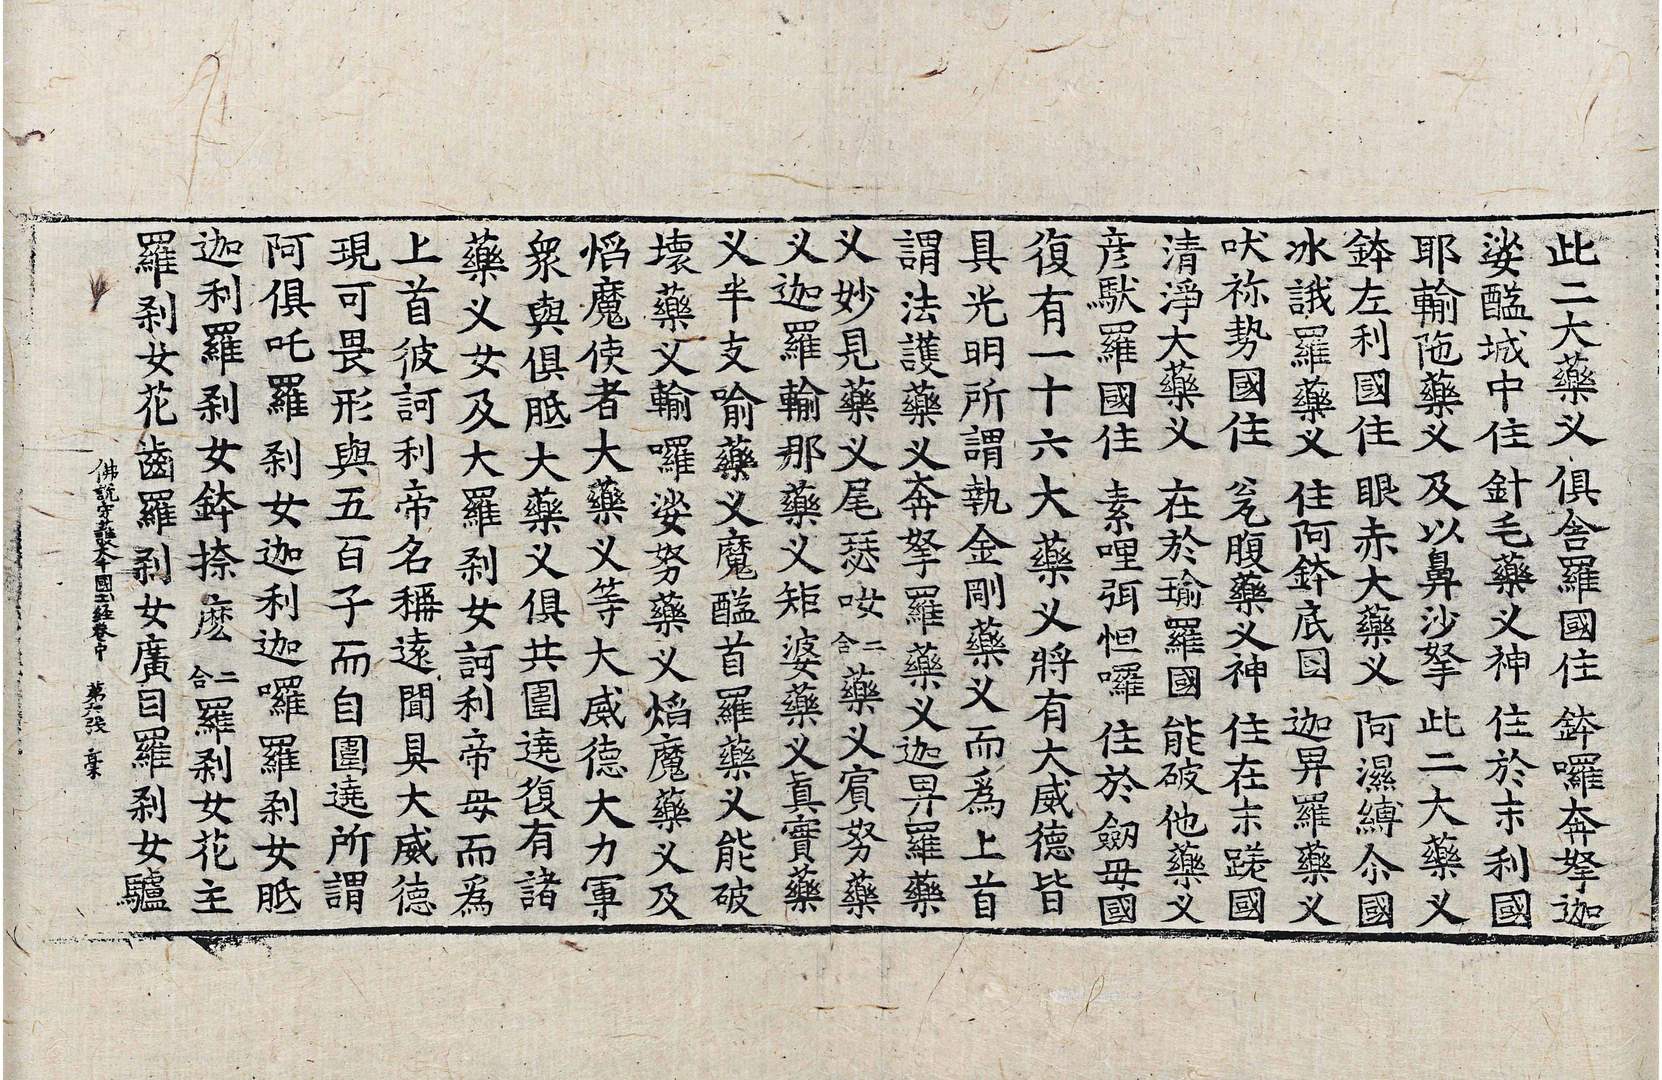 此二大藥义 俱舍羅國住 鉢囉奔拏迦
娑醯城中住 針毛藥义神 住於末利國
耶輸陁藥义 及以鼻沙拏 此二大藥义
鉢左利國住 眼赤大藥义 阿濕縛尒國
冰誐羅藥义 住阿鉢底國 迦毘羅藥义
吠祢勢國住 瓮腹藥义神 住在末蹉國
清淨大藥义 在於瑜羅國 能破他藥义
彦馱羅國住 素哩弭怛囉 住於劒毋國
復有一十六大藥义將有大威德皆
具光明所謂執金剛藥义而為上首
謂法護藥义奔拏羅藥义迦毘羅藥
义妙見藥义尾瑟吺二合藥义賔努藥
义迦羅輸那藥义矩婆藥义真實藥
义半支喻藥义魔醯首羅藥义能破
壞藥义輸囉娑努藥义焰魔藥义及
焰魔使者大藥义等大威德大力軍
衆與俱胝大藥义俱共圍遶復有諸
藥义女及大羅剎女訶利帝母而為
上首彼訶利帝名稱遠聞具大威德
現可畏形與五百子而自圍遶所謂
阿俱吒羅剎女迦利迦囉羅剎女胝
迦利羅剎女鉢捺麽二合羅剎女花主
羅剎女花齒羅剎女廣目羅剎女驢
佛說守護大千國土經卷中 第六張 槖